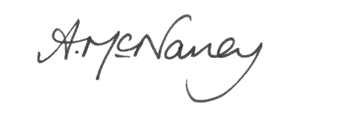 A. McNaney